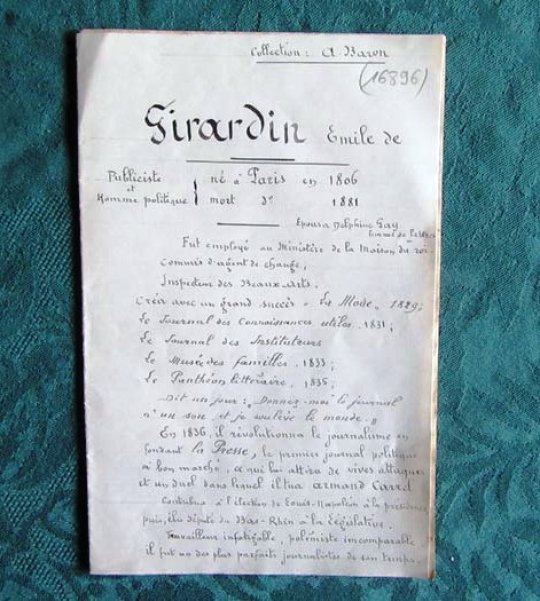 Collection : A Baron
(16896)
Girardin Emile de
Publiciste
et
Homme politique
né à Paris en 1806
mort do 1881
Epousa Delphine Gay
femme de lettres
Fut employé au Ministère de la Maison du roi
Commis d'agent de change ;
Inspecteur des Beaux-Arts.
Créa avec un grand succès « La Mode » 1829 ;
Le Journal des Connaissances utiles . 1831 ;
Le Journal des Instituteurs
Le Musée des familles . 1833 ;
Le Panthéon littéraire , 1835 ;
Dit un jour : „ Donnez-moi le journal
à un sou et je soulève le monde . „
En 1836, il révolutionna le journalisme en
fondant la Presse, le premier journal politique
à bon marché , ce qui lui attira de vives attaques
et un duel dans lequel il tua Armand Carrel
Contribua à l'élection de Louis-Napoléon à la présidence
puis, élu député du Bas-Rhin à la Législative .
Travailleur infatigable , polémiste incomparable
il fut un des plus parfaits journalistes de son temps .